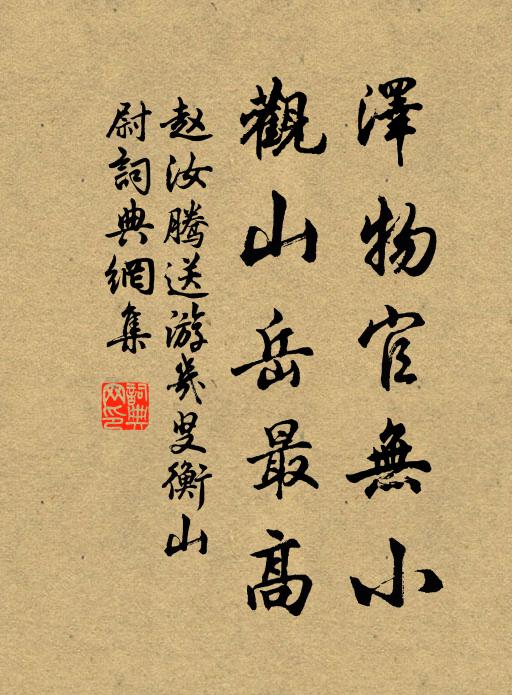 澤物官無小
觀山岳最高
赵汝騰送游幾叟衡山
尉詞典網集
詞典
网印